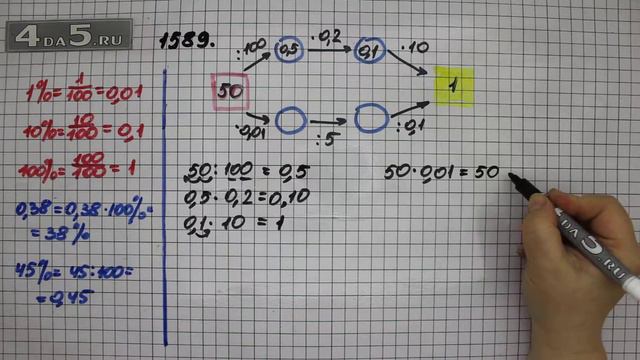 4DA5.RU
1589.
:100 0,5 ·0,2 0,1 ·10
50 1
·0,01 :5 :0,1
1%=1/100=0,01
10%=10/100=0,1
100%=100/100=1
0,38=0,38·100%=
=38%
45%=45:100=
=0,45
50:100=0,5
0,5·0,2=0,10
0,1·10=1
50·0,01=50
4DA5.RU